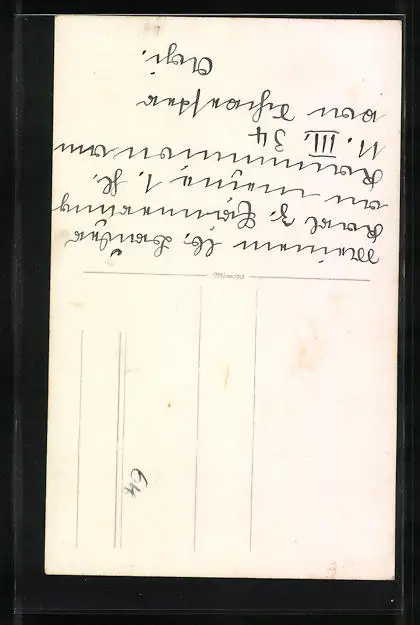 Meinem lb. Bruder
Karl z. Erinnerung
an meine 1. hl.
Kommunion am
11. III. 34
von Schwester
Argi.
64